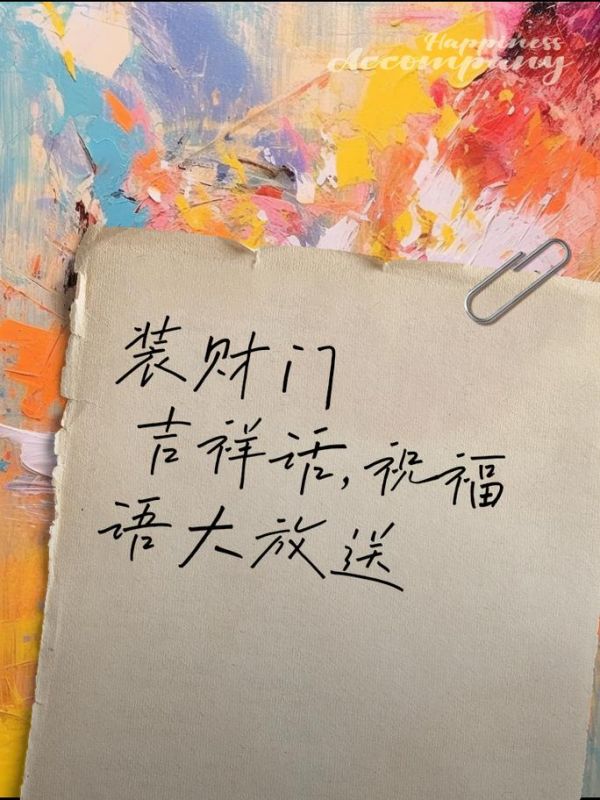 Happiness
Accompany
装财门
吉祥话,祝福
语大放送